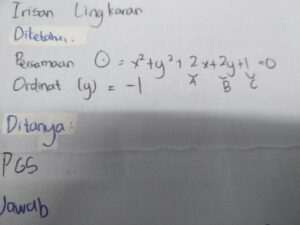 Irisan Lingkaran
Diketahui..
Persamaan ⊙ = x² + y² + 2x + 2y + 1 = 0
A B C
Ordinat (y) = -1
Ditanya:
PGS
Jawab